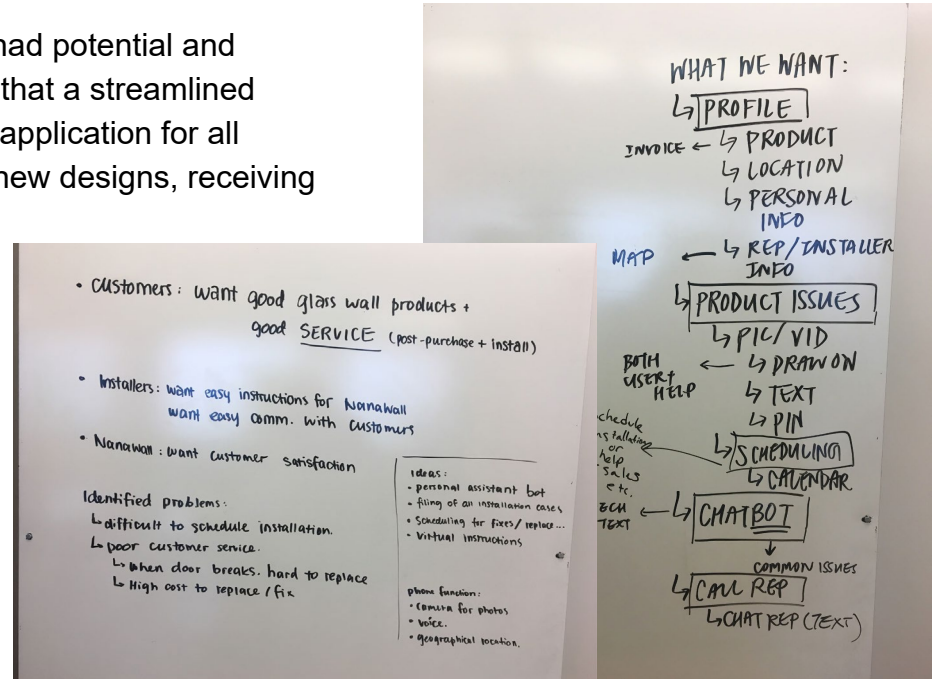 had potential and
that a streamlined
application for all
new designs, receiving
• Customers: want good glass wall products +
good SERVICE (post-purchase + install)
• Installers: want easy instructions for Nanawall
want easy comm. with customers
• Nanawall: want customer satisfaction
Identified problems:
↳ difficult to schedule installation.
↳ poor customer service.
↳ When door breaks. hard to replace
↳ High cost to replace / fix
ideas:
• personal assistant bot
• filing of all installation cases
• Scheduling for fixes/ replace...
• Virtual instructions
phone function:
• camera for photos
• voice.
• geographical location.
WHAT WE WANT:
↳ PROFILE
INVOICE ← ↳ PRODUCT
↳ LOCATION
↳ PERSONAL
INFO
MAP ← ↳ REP/INSTALLER
INFO
↳ PRODUCT ISSUES
↳ PIC/VID
BOTH ← ↳ DRAW ON
USER +
HELP
↳ TEXT
↳ PIN
↳ SCHEDULING
↳ CALENDAR
or
help
sales
etc.
TEXT
← ↳ CHATBOT
↓
COMMON ISSUES
↳ CALL REP
↳ CHAT REP (TEXT)